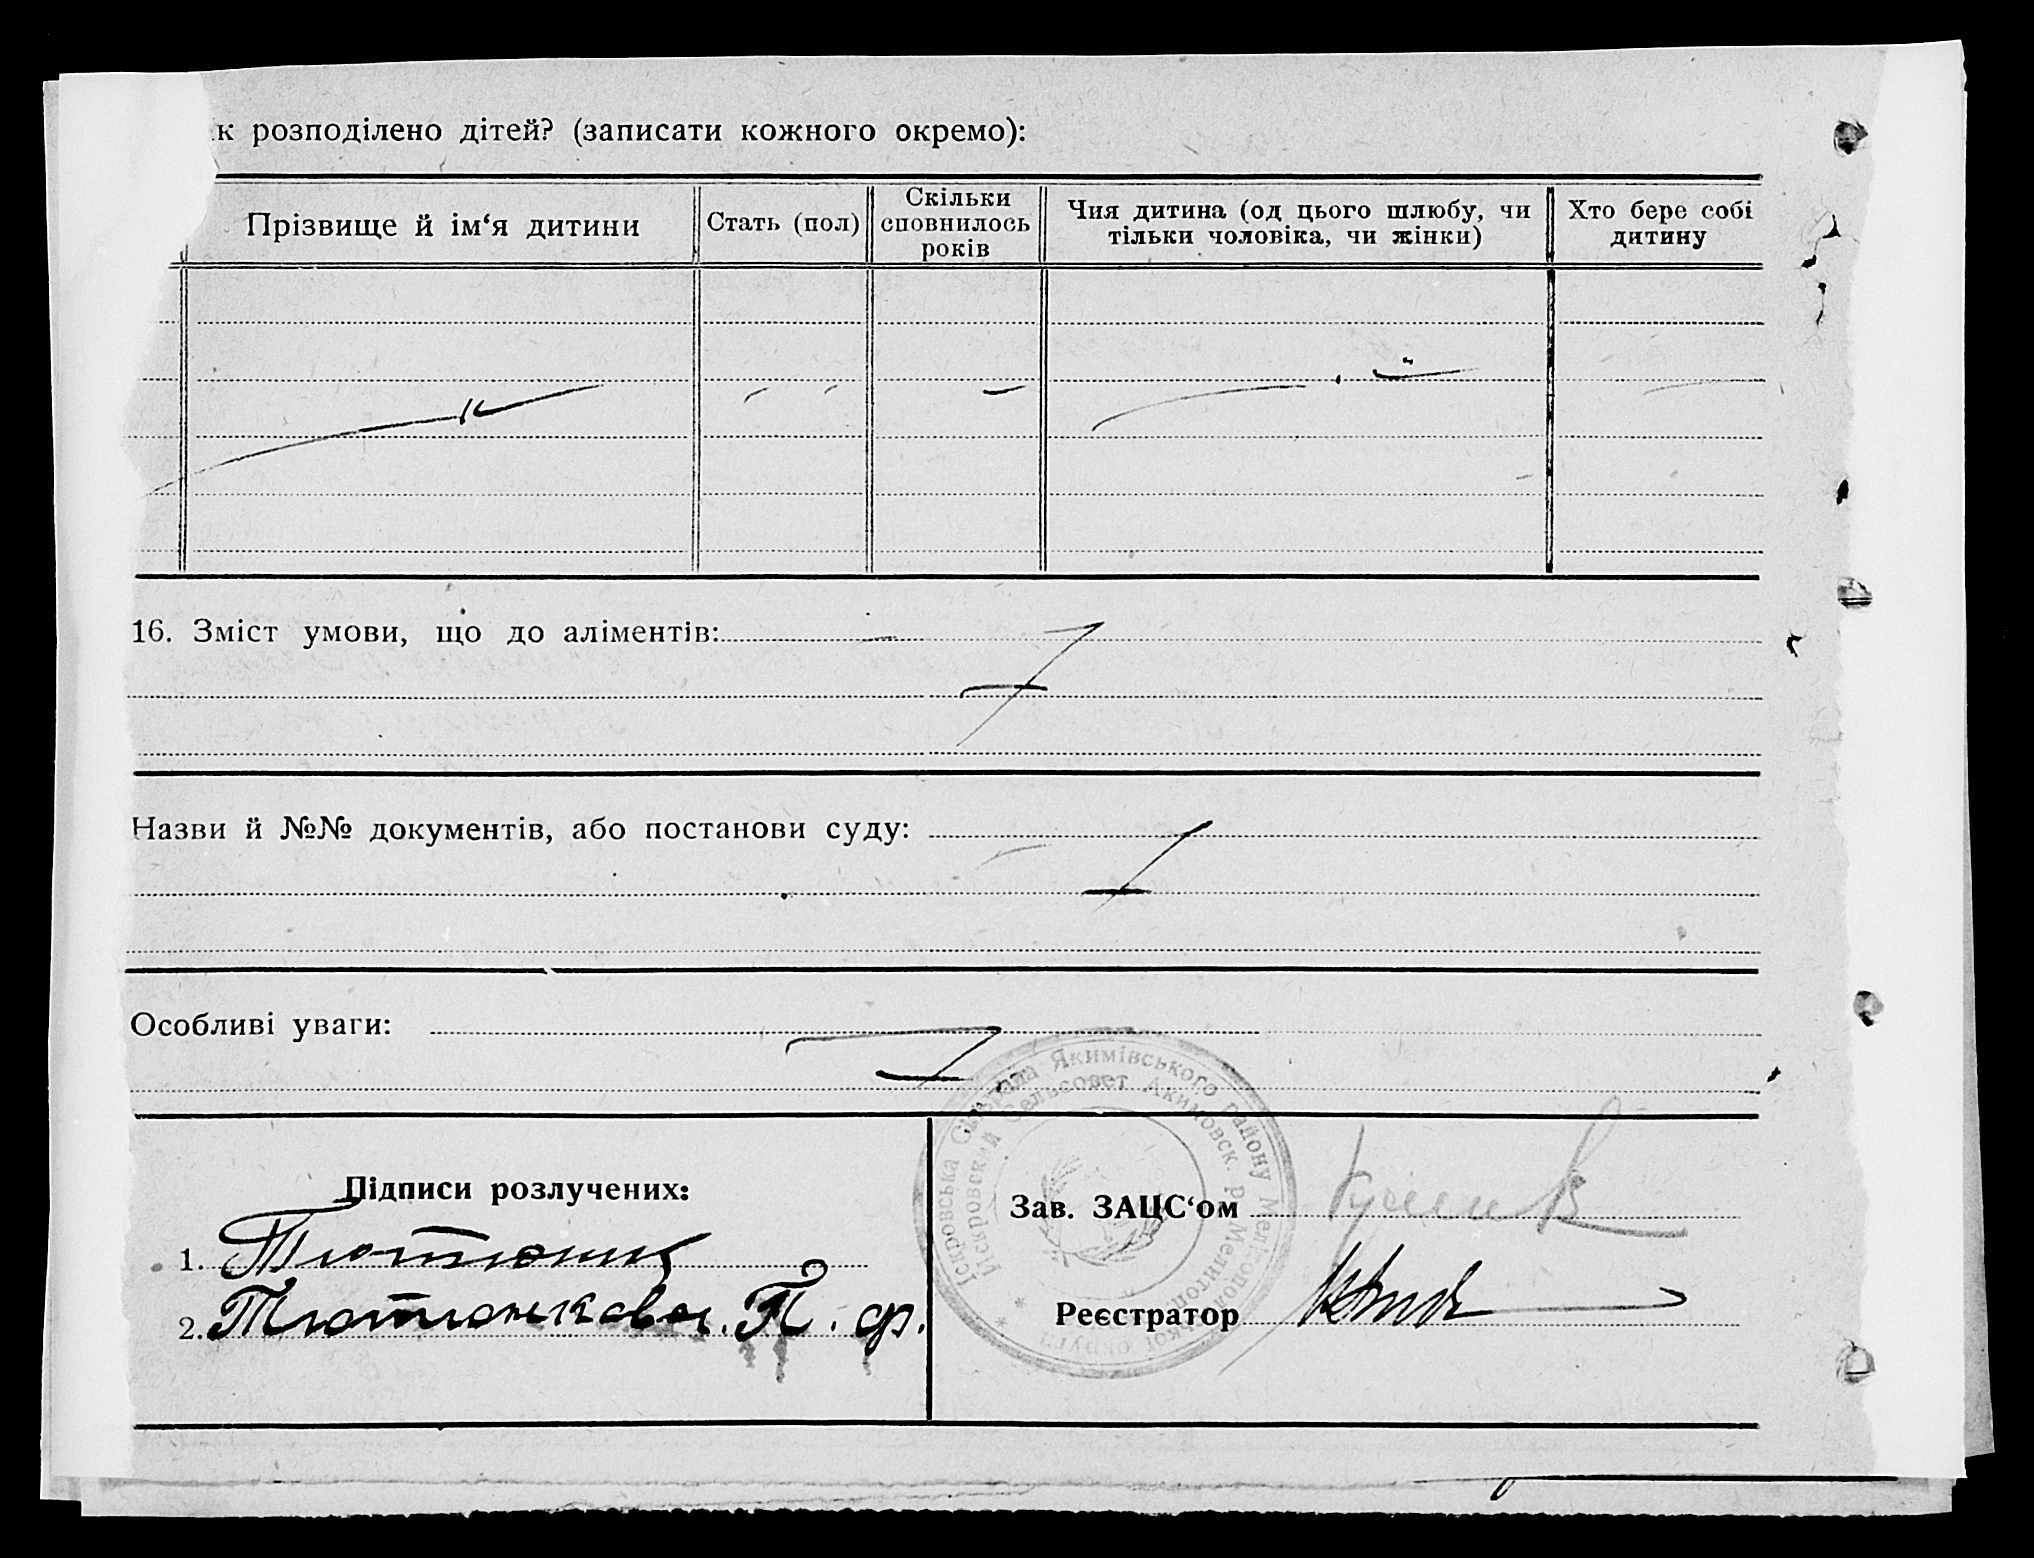 к розподілено дітей? (записати кожного окремо):
Прізвище й ім‘я дитини
Стать (пол)
Скільки
сповнилось
років
Чия дитина (од цього шлюбу, чи
тільки чоловіка, чи жінки)
Хто бере собі
дитину
16. Зміст умови, що до аліментів:
Назви й №№ документів, або постанови суду:
Особливі уваги:
Підписи розлучених:
1.
2. Тютюнкова. П. ф.
Зав. ЗАЦС‘ом
Реєстратор
Іскровська Сільрада Якимівського району Мелітопольської округи
Искровский Сельсовет Акимовск. р. Мелитоп.